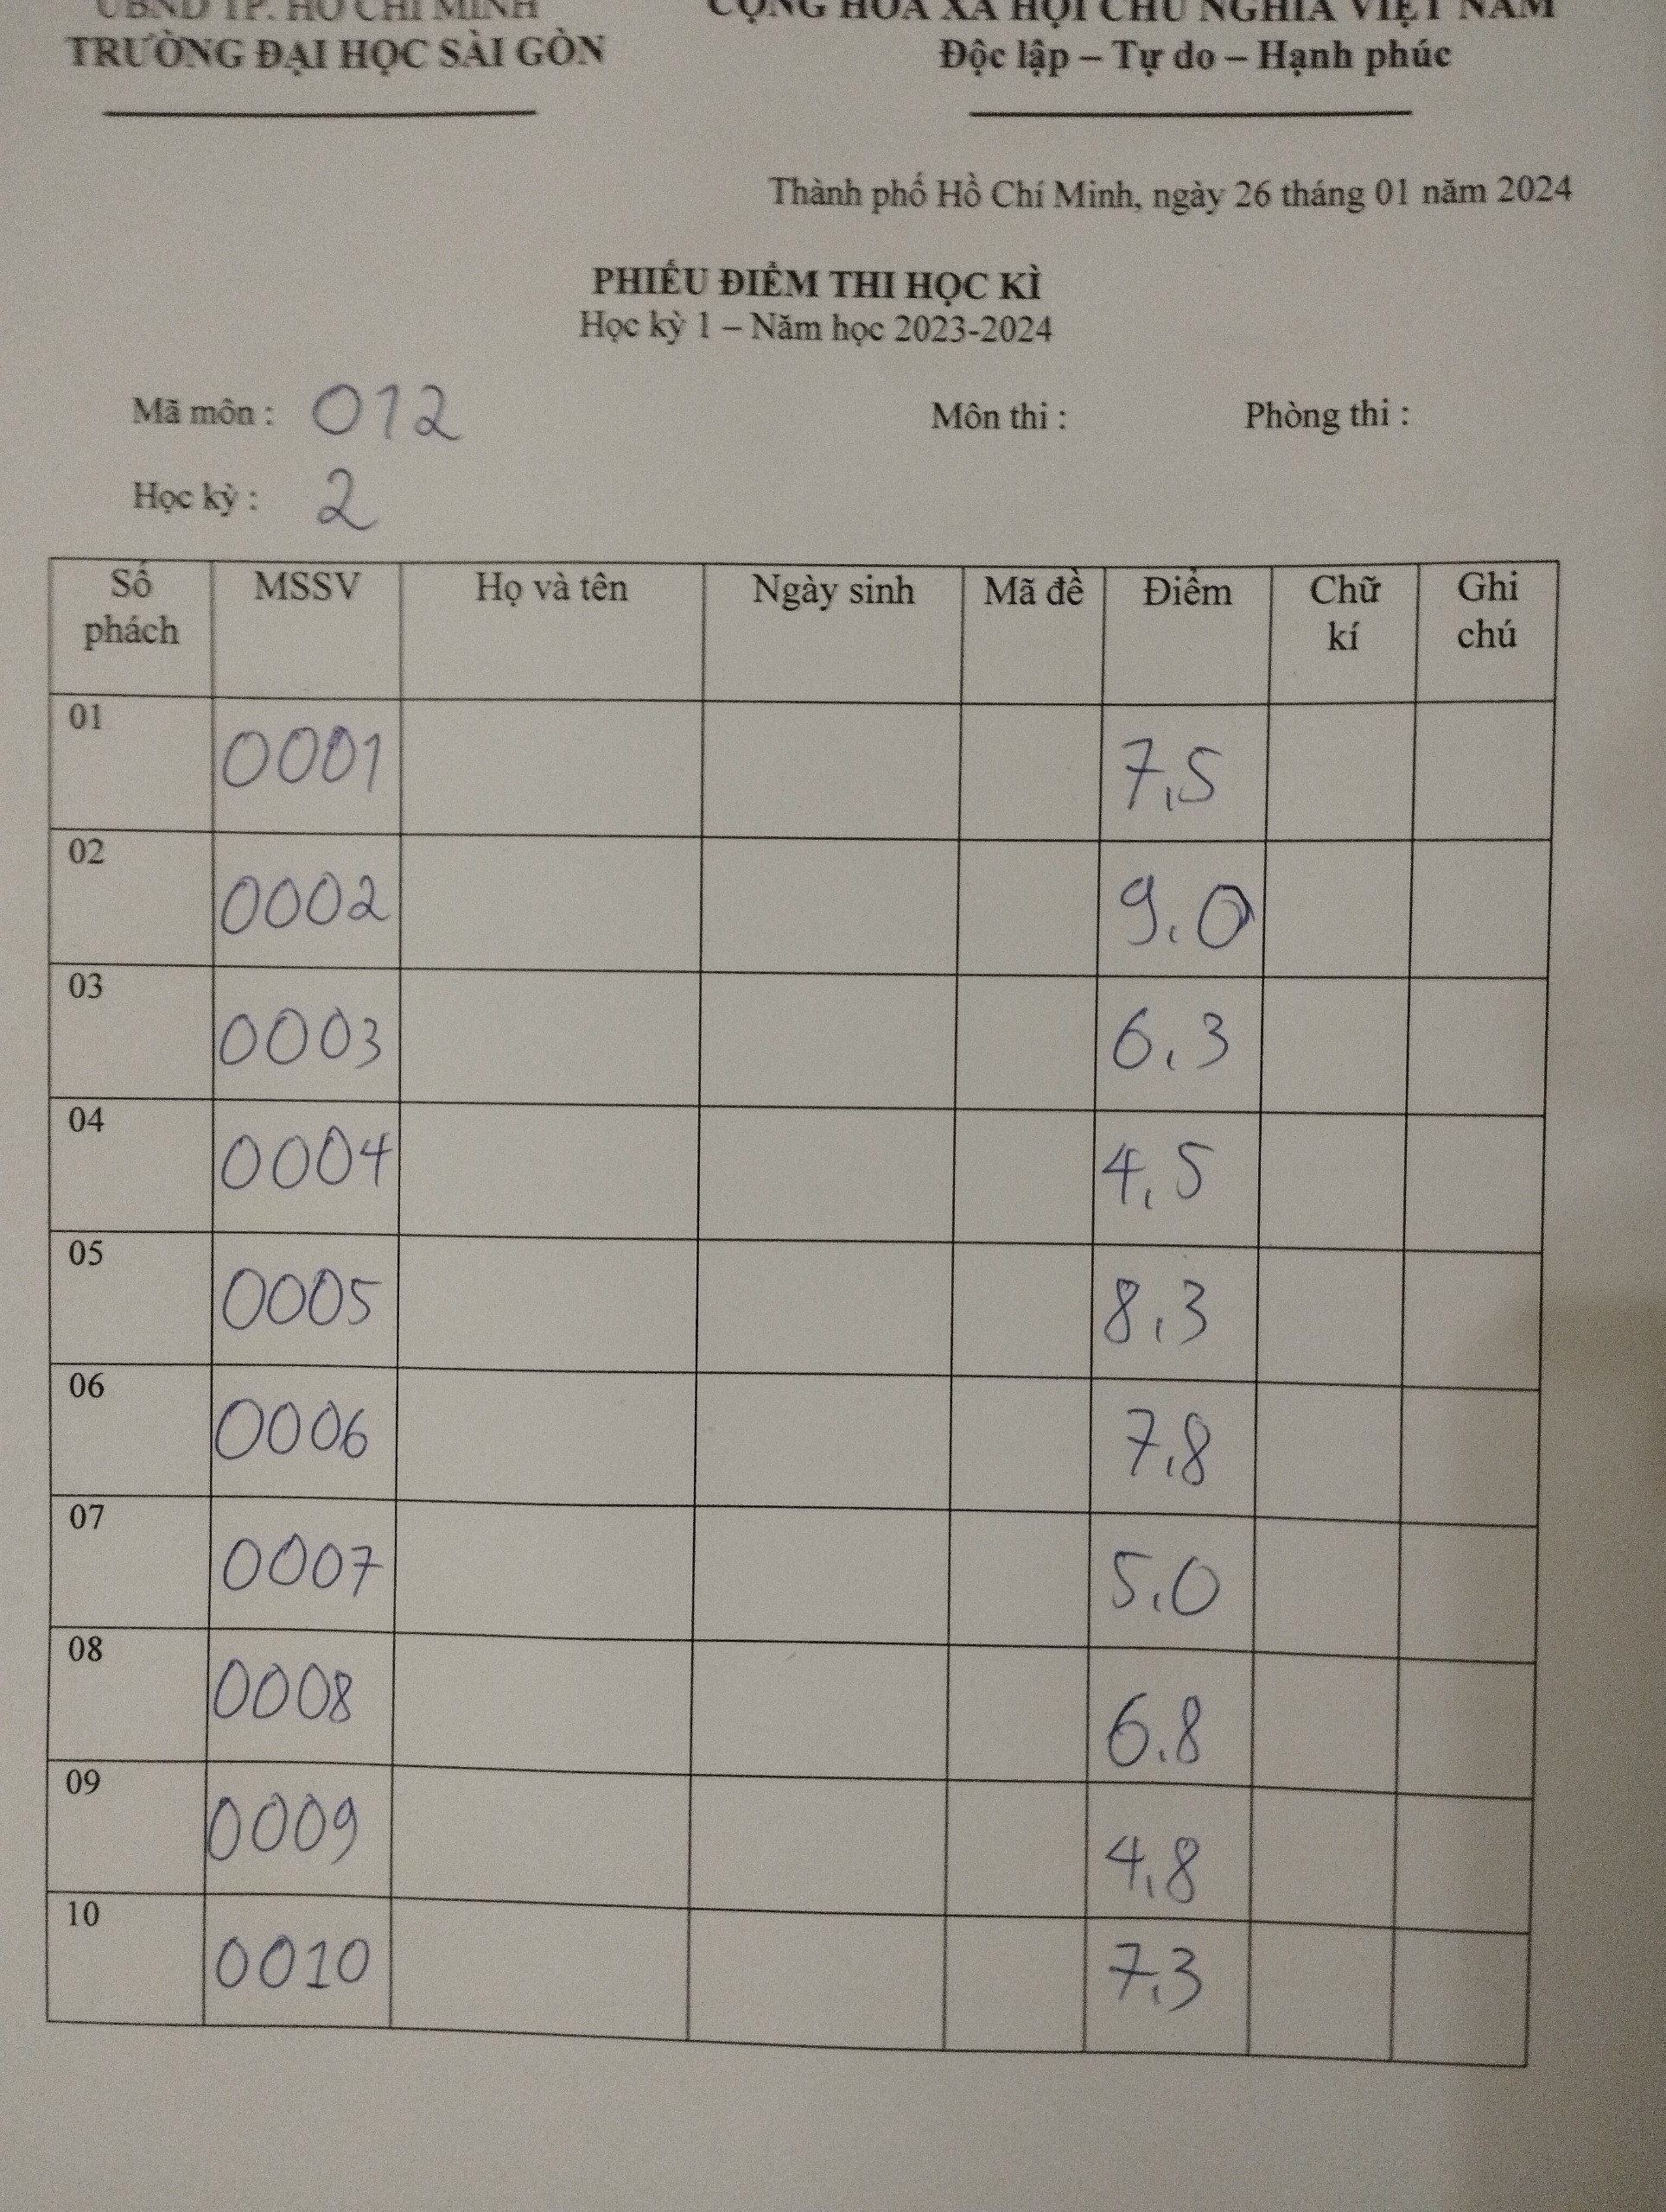 UBND TP. HỒ CHÍ MINH
CỘNG HÒA XÃ HỘI CHỦ NGHĨA VIỆT NAM
TRƯỜNG ĐẠI HỌC SÀI GÒN
Độc lập – Tự do – Hạnh phúc
Thành phố Hồ Chí Minh, ngày 26 tháng 01 năm 2024
PHIẾU ĐIỂM THI HỌC KÌ
Học kỳ 1 – Năm học 2023-2024
Mã môn : 012 Môn thi : Phòng thi :
Học kỳ : 2
Số phách MSSV Họ và tên Ngày sinh Mã đề Điểm Chữ kí Ghi chú
01 0001 7,5
02 0002 9,0
03 0003 6,3
04 0004 4,5
05 0005 8,3
06 0006 7,8
07 0007 5,0
08 0008 6,8
09 0009 4,8
10 0010 7,3